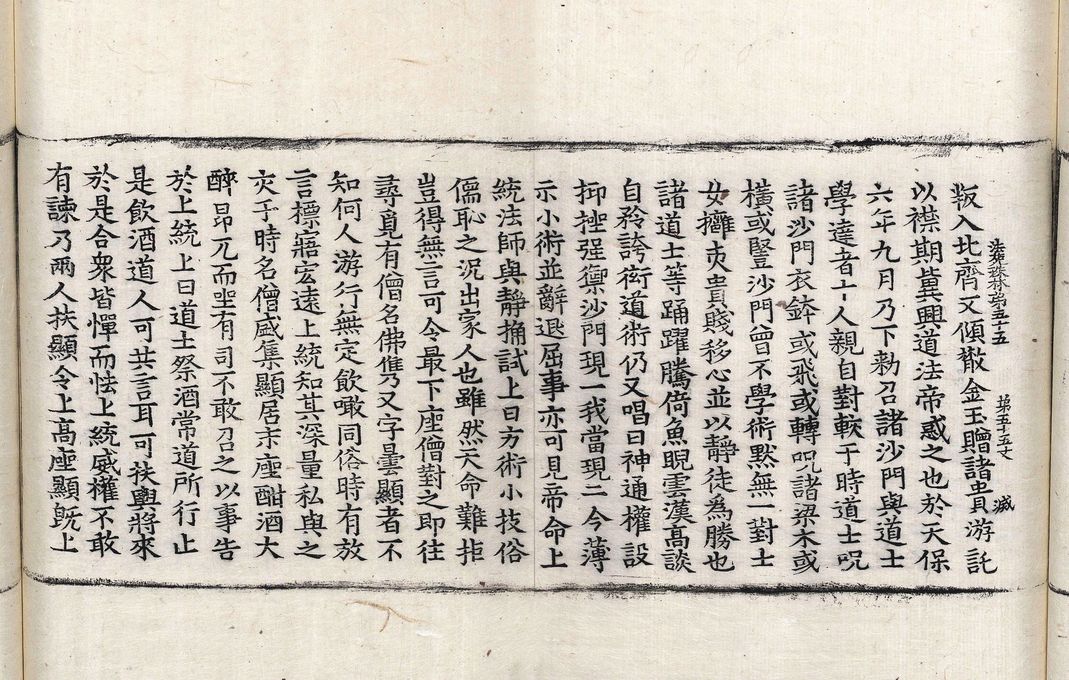 法苑珠林第五十五　第五十五丈　滅
叛入北齊又傾散金玉贈諸貴游託
以襟期冀興道法帝惑之也於天保
六年九月乃下勑召諸沙門與道士
學達者十人親自對挍于時道士呪
諸沙門衣鉢或飛或轉呪諸梁木或
橫或竪沙門曾不學術默無一對士
女擁夾貴賤移心並以靜徒為勝也
諸道士等踊躍騰倚魚睨雲漢高談
自矜誇衒道術仍又唱曰神通權設
抑挫强禦沙門現一我當現二今薄
示小術並辭退屈事亦可見帝命上
統法師與靜捔試上曰方術小技俗
儒恥之況出家人也雖然天命難拒
豈得無言可令最下座僧對之即往
尋覓有僧名佛儁又字曇顯者不
知何人游行無定飲噉同俗時有放
言標寤宏遠上統知其深量私與之
交于時名僧盛集顯居末座酣酒大
醉昂兀而坐有司不敢召之以事告
於上統上曰道士祭酒常道所行止
是飲酒道人可共言耳可扶轝將來
於是合衆皆憚而怯上統威權不敢
有諫乃兩人扶顯令上高座顯既上